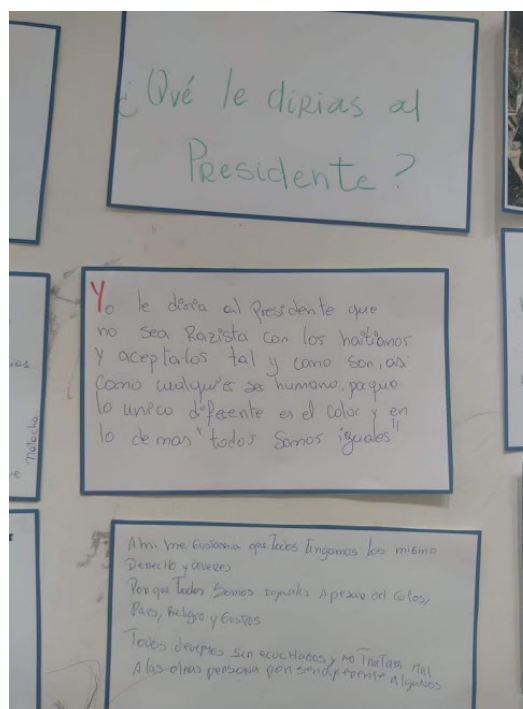 ¿Qué le dirias al
Presidente?
Yo le diria al Presidente que
no sea Razista con los haitianos
y aceptarlos tal y como son, asi
como cualquier ser humano, porque
lo unico diferente es el color y en
lo demas "todos somos iguales"
Natacha
A mi me Gustaria que Todos Tengamos los mismo
Derecho y deveres
Porque Todos Somos iguales Apesar del Color,
Pais, Religio y Gustos
Todos devemos ser ecochados y no Tratar mal
A las otras persona por ser diferente Algunos